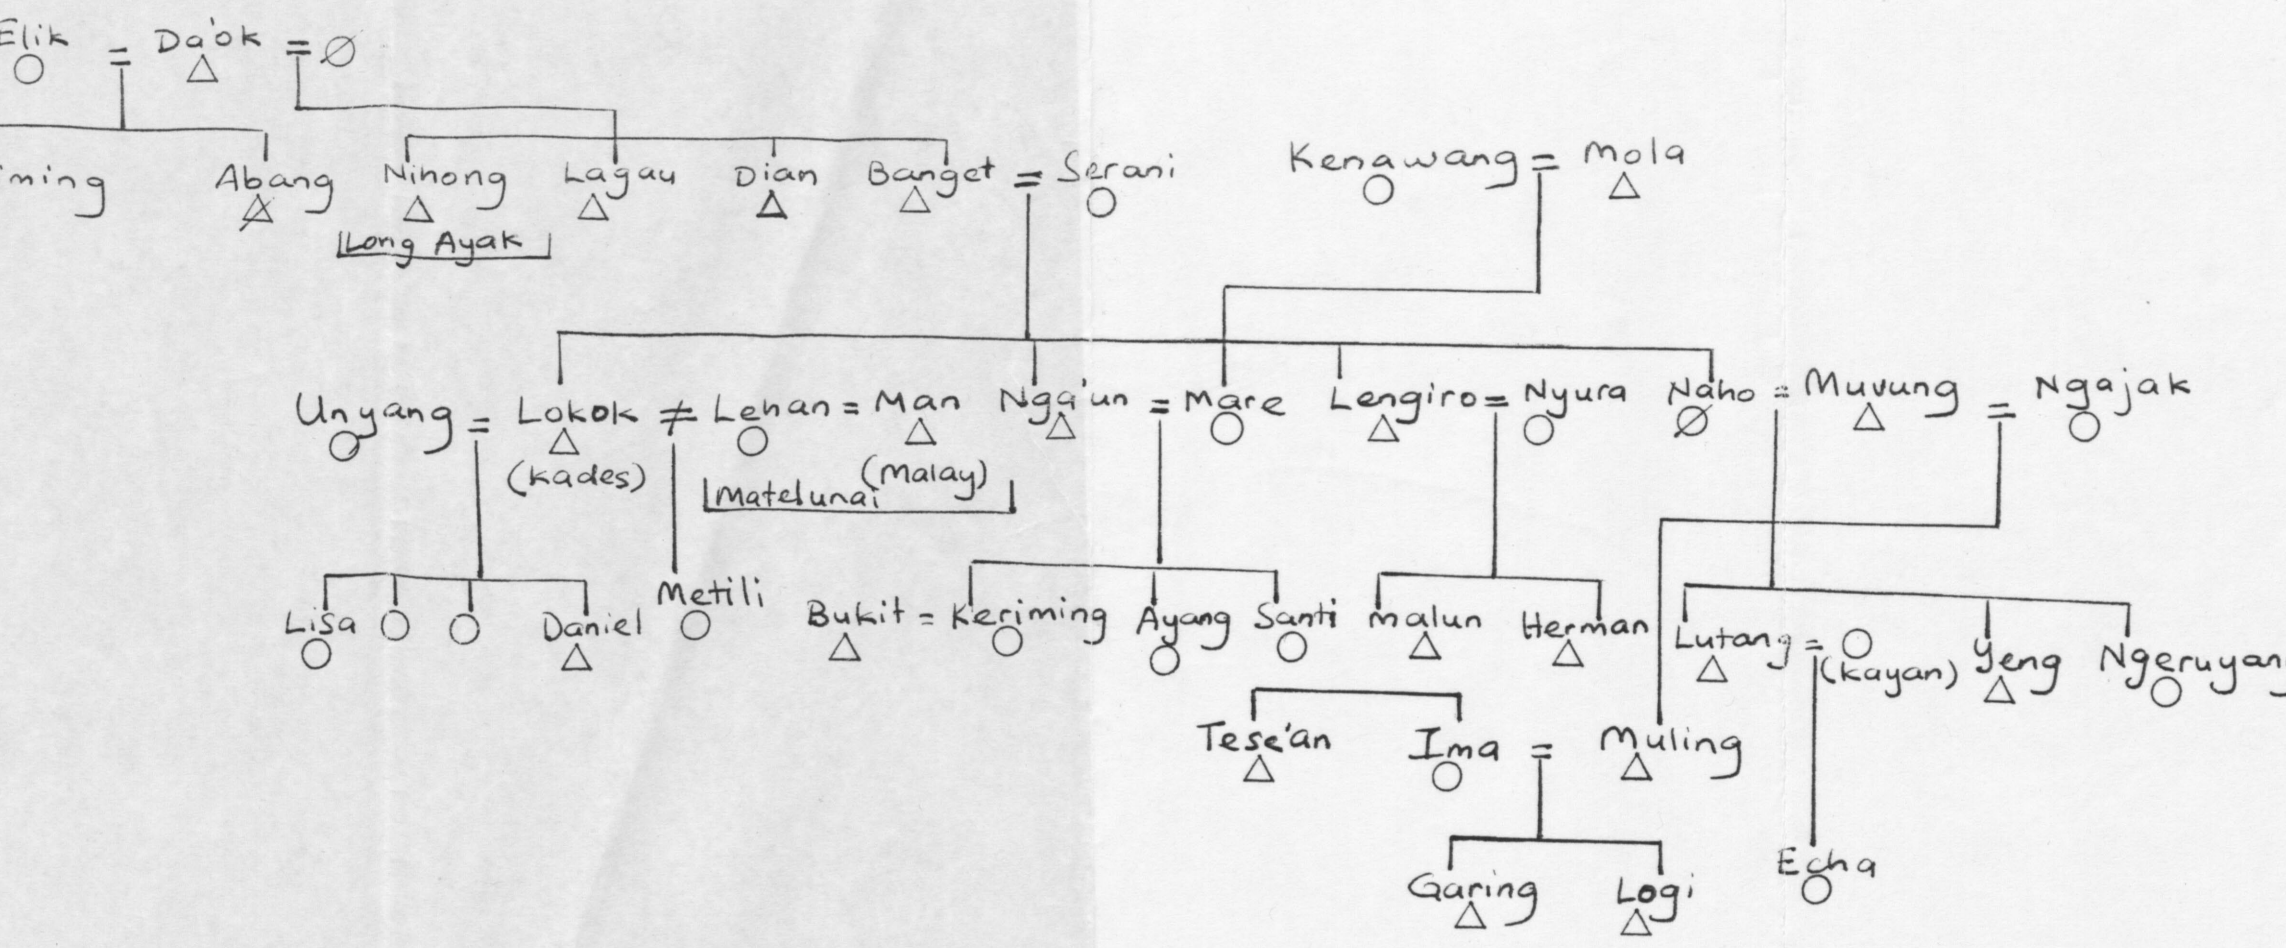 Elik = Da'ok = Ø
iming Abang Nihong Lagau Dian Banget = Serani Kenawang = Mola
Long Ayak
Unyang = Lokok ≠ Lehan = Man Nga'un = Mare Lengiro = Nyura Naho = Muvung = Ngajak
(kades) (Malay)
Matelunai
Lisa Daniel Metili Bukit = Keriming Ayang Santi Malun Herman Lutang = (kayan) Yeng Ngeruyan
Tese'an Ima = Muling
Garing Logi Echa